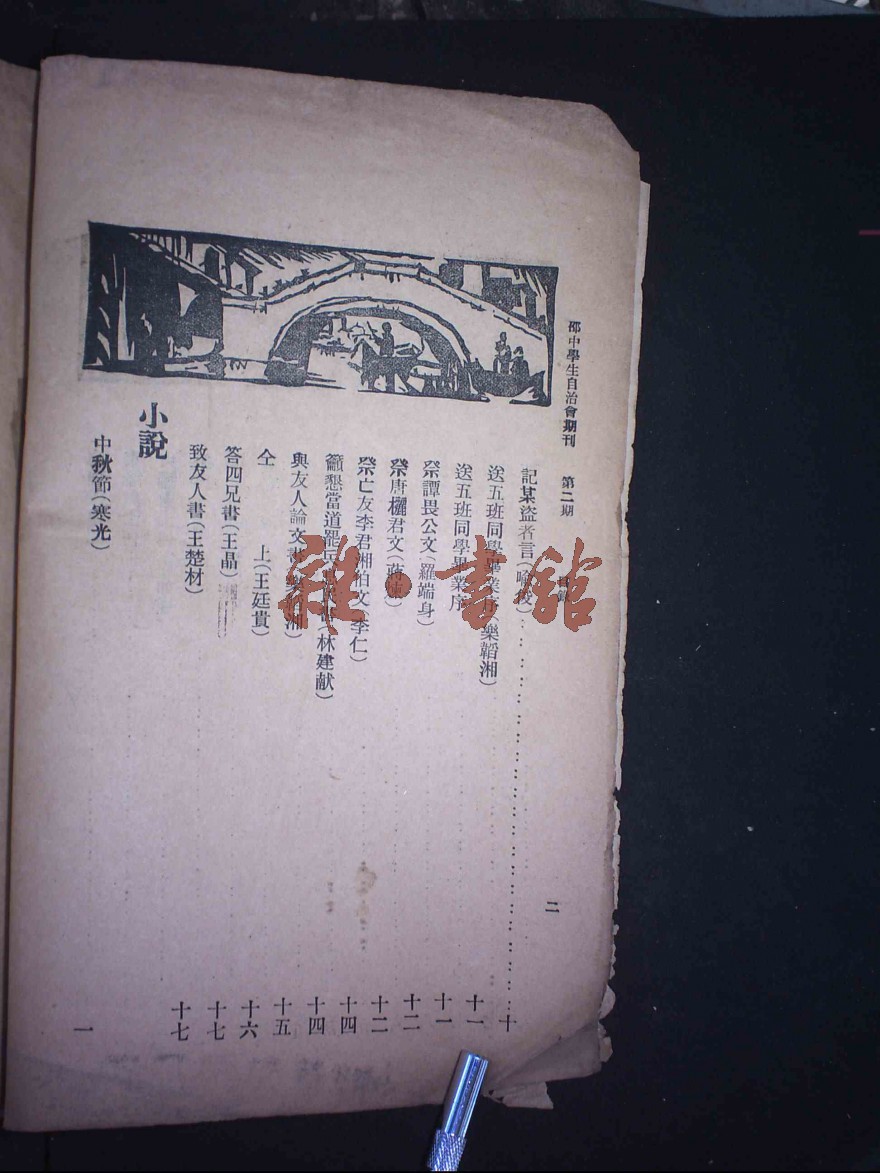 邵中學生自治會期刊 第二期 二
記某盜者言 十
送五班同學畢業序(樂韜湘) 十一
送五班同學畢業序 十一
祭譚畏公文(羅端身) 十二
祭唐 君文(蔣 ) 十二
祭亡友李君湘伯文(李仁) 十四
籲懇當道罷兵 林建献) 十四
與友人論文書 湘) 十五
仝 上(王廷貴) 十六
答四兄書(王晶) 十七
致友人書(王楚材) 十七
小說
中秋節(寒光) 一
雜·書館